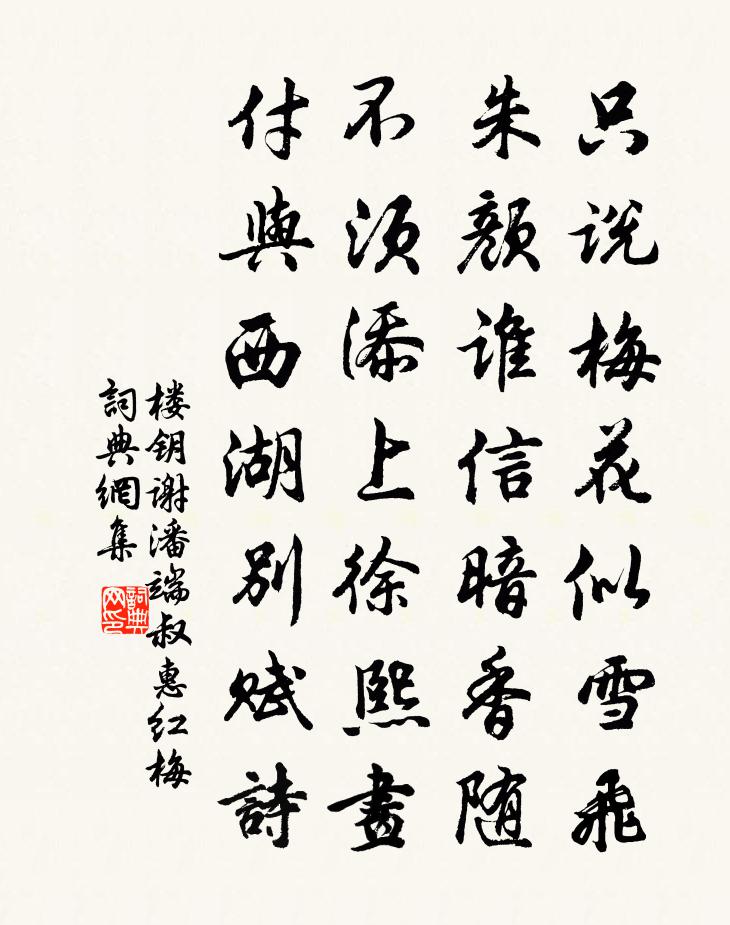 只说梅花似雪飛
朱顏谁信暗香随
不须添上徐熙畫
付與西湖别赋詩
楼钥谢潘端叔惠红梅
詞典網集
詞典网印